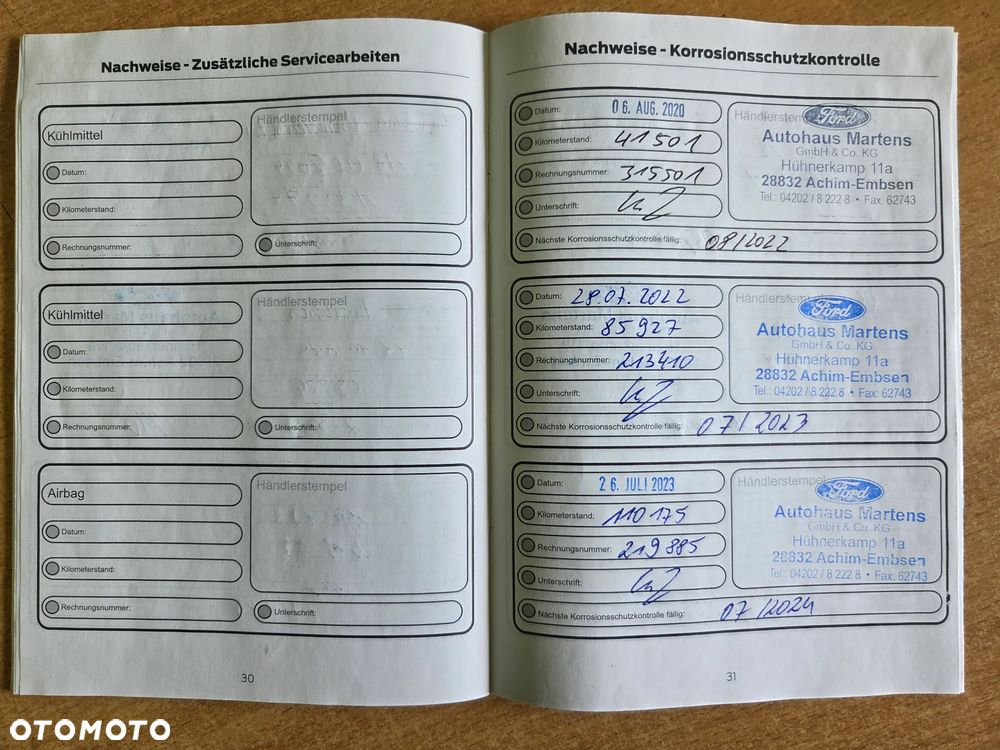 Nachweise - Zusätzliche Servicearbeiten
Kühlmittel
Händlerstempel
Datum:
Kilometerstand:
Rechnungsnummer:
Unterschrift:
Kühlmittel
Händlerstempel
Datum:
Kilometerstand:
Rechnungsnummer:
Unterschrift:
Airbag
Händlerstempel
Datum:
Kilometerstand:
Rechnungsnummer:
Unterschrift:
30
Nachweise - Korrosionsschutzkontrolle
Datum: 06. AUG. 2020
Kilometerstand: 41501
Rechnungsnummer: 315501
Unterschrift:
Händlerstem
Ford
Autohaus Martens
GmbH & Co. KG
Hühnerkamp 11a
28832 Achim-Embsen
Tel.: 04202 / 8 222 8 • Fax: 62743
Nächste Korrosionsschutzkontrolle fällig: 08/2022
Datum: 28.07.2022
Kilometerstand: 85927
Rechnungsnummer: 213410
Unterschrift:
Händlerstempel
Ford
Autohaus Martens
GmbH & Co. KG
Hühnerkamp 11a
28832 Achim-Embsen
Tel.: 04202 / 8 222 8 • Fax: 62743
Nächste Korrosionsschutzkontrolle fällig: 07/2023
Datum: 26. JULI 2023
Kilometerstand: 110175
Rechnungsnummer: 219885
Unterschrift:
Händlerstempel
Ford
Autohaus Martens
GmbH & Co. KG
Hühnerkamp 11a
28832 Achim-Embsen
Tel.: 04202 / 8 222 8 • Fax: 62743
Nächste Korrosionsschutzkontrolle fällig: 07/2024
31
OTOMOTO